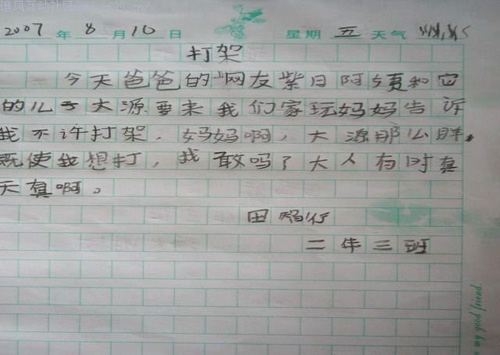 2007 年 8 月 10 日 星期 五 天气
打架
今天爸爸的网友紫日阿姨和它
的儿子大源要来我们家玩妈妈告诉
我不许打架。妈妈啊,大源那么胖,
既使我想打,我敢吗?大人有时真
天真啊。
田
二年三班
my good friend